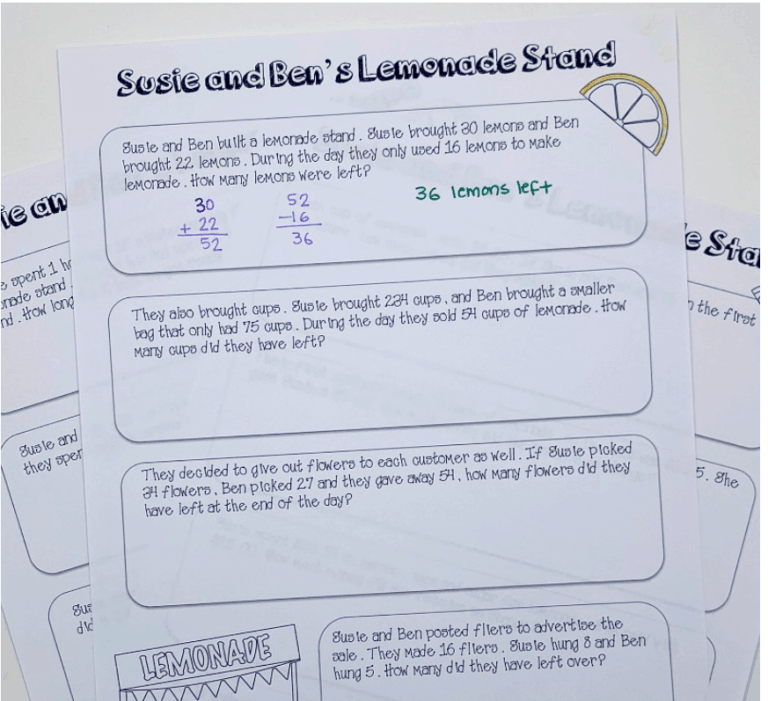 Susie and Ben's Lemonade Stand
Susie and Ben built a lemonade stand. Susie brought 30 lemons and Ben
brought 22 lemons. During the day they only used 16 lemons to make
lemonade. How many lemons were left?
30
+ 22
52
52
-16
36
36 lemons left
They also brought cups. Susie brought 234 cups, and Ben brought a smaller
bag that only had 75 cups. During the day they sold 54 cups of lemonade. How
many cups did they have left?
They decided to give out flowers to each customer as well. If Susie picked
34 flowers, Ben picked 27 and they gave away 54, how many flowers did they
have left at the end of the day?
LEMONADE
Susie and Ben posted fliers to advertise the
sale. They made 16 fliers. Susie hung 8 and Ben
hung 5. How many did they have left over?
ie an
spent 1 h
nade stand
nd. How long
Susie and
they spen
Sus
did
e Sta
n the first
5. She